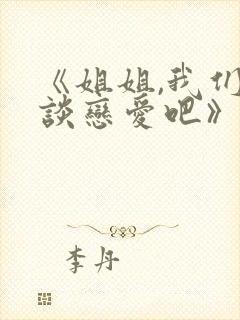 《姐姐,我们
談戀愛吧》
李丹